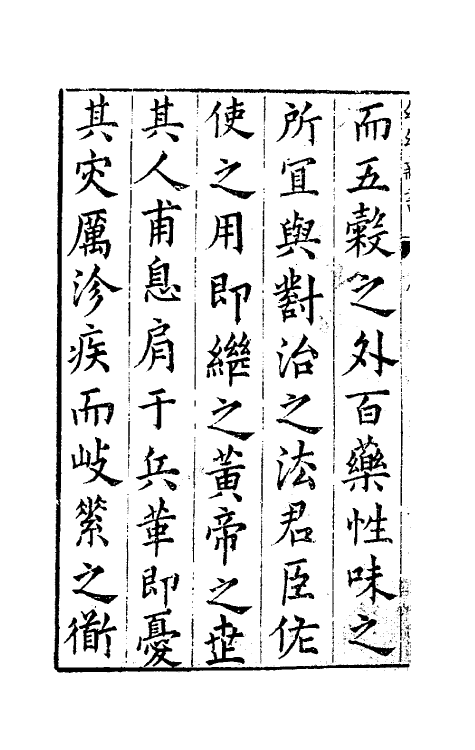 而五穀之外百藥性味之
所冝與對治之法君臣佐
使之用即繼之黃帝之世
其人甫息肩于兵革即憂
其灾厲沴疾而岐縈之衕